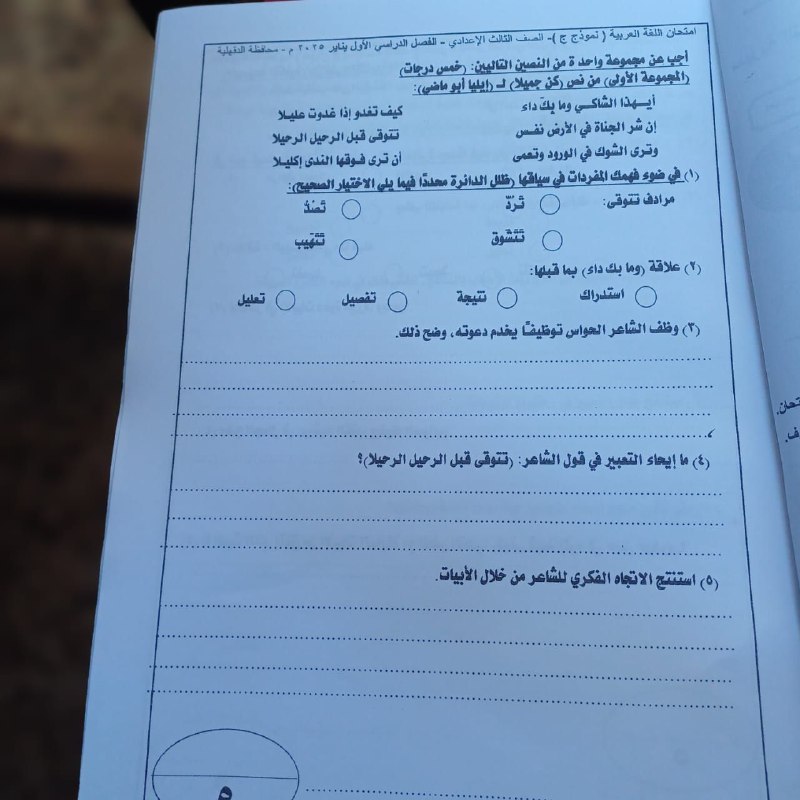 امتحان اللغة العربية ( نموذج ج )- الصف الثالث الإعدادي - الفصل الدراسي الأول يناير ٢٠٢٥ م - محافظة الدقهلية
أجب عن مجموعة واحد ة من النصين التاليين: (خمس درجات)
(المجموعة الأولى) من نص (كن جميلا) لـ (إيليا أبو ماضي):
أيـهـذا الشاكـي وما بِكَ داء كيف تغدو إذا غدوت عليـلا
إن شر الجناة في الأرض نفـس تتوقى قبل الرحيل الرحيلا
وترى الشوك في الورود وتعمى أن ترى فوقها الندى إكليـلا
(١) في ضوء فهمك المفردات في سياقها (ظلل الدائرة محددًا فيما يلي الاختيار الصحيح):
مرادف تتوقى: تَردّ تَصُدّ
تَتَشوق تَتَهيب
(٢) علاقة (وما بك داء) بما قبلها:
استدراك نتيجة تفصيل تعليل
(٣) وظف الشاعر الحواس توظيفًا يخدم دعوته، وضح ذلك.
(٤) ما إيحاء التعبير في قول الشاعر: (تتوقى قبل الرحيل الرحيلا)؟
(٥) استنتج الاتجاه الفكري للشاعر من خلال الأبيات.
٥
تحان.
ف.